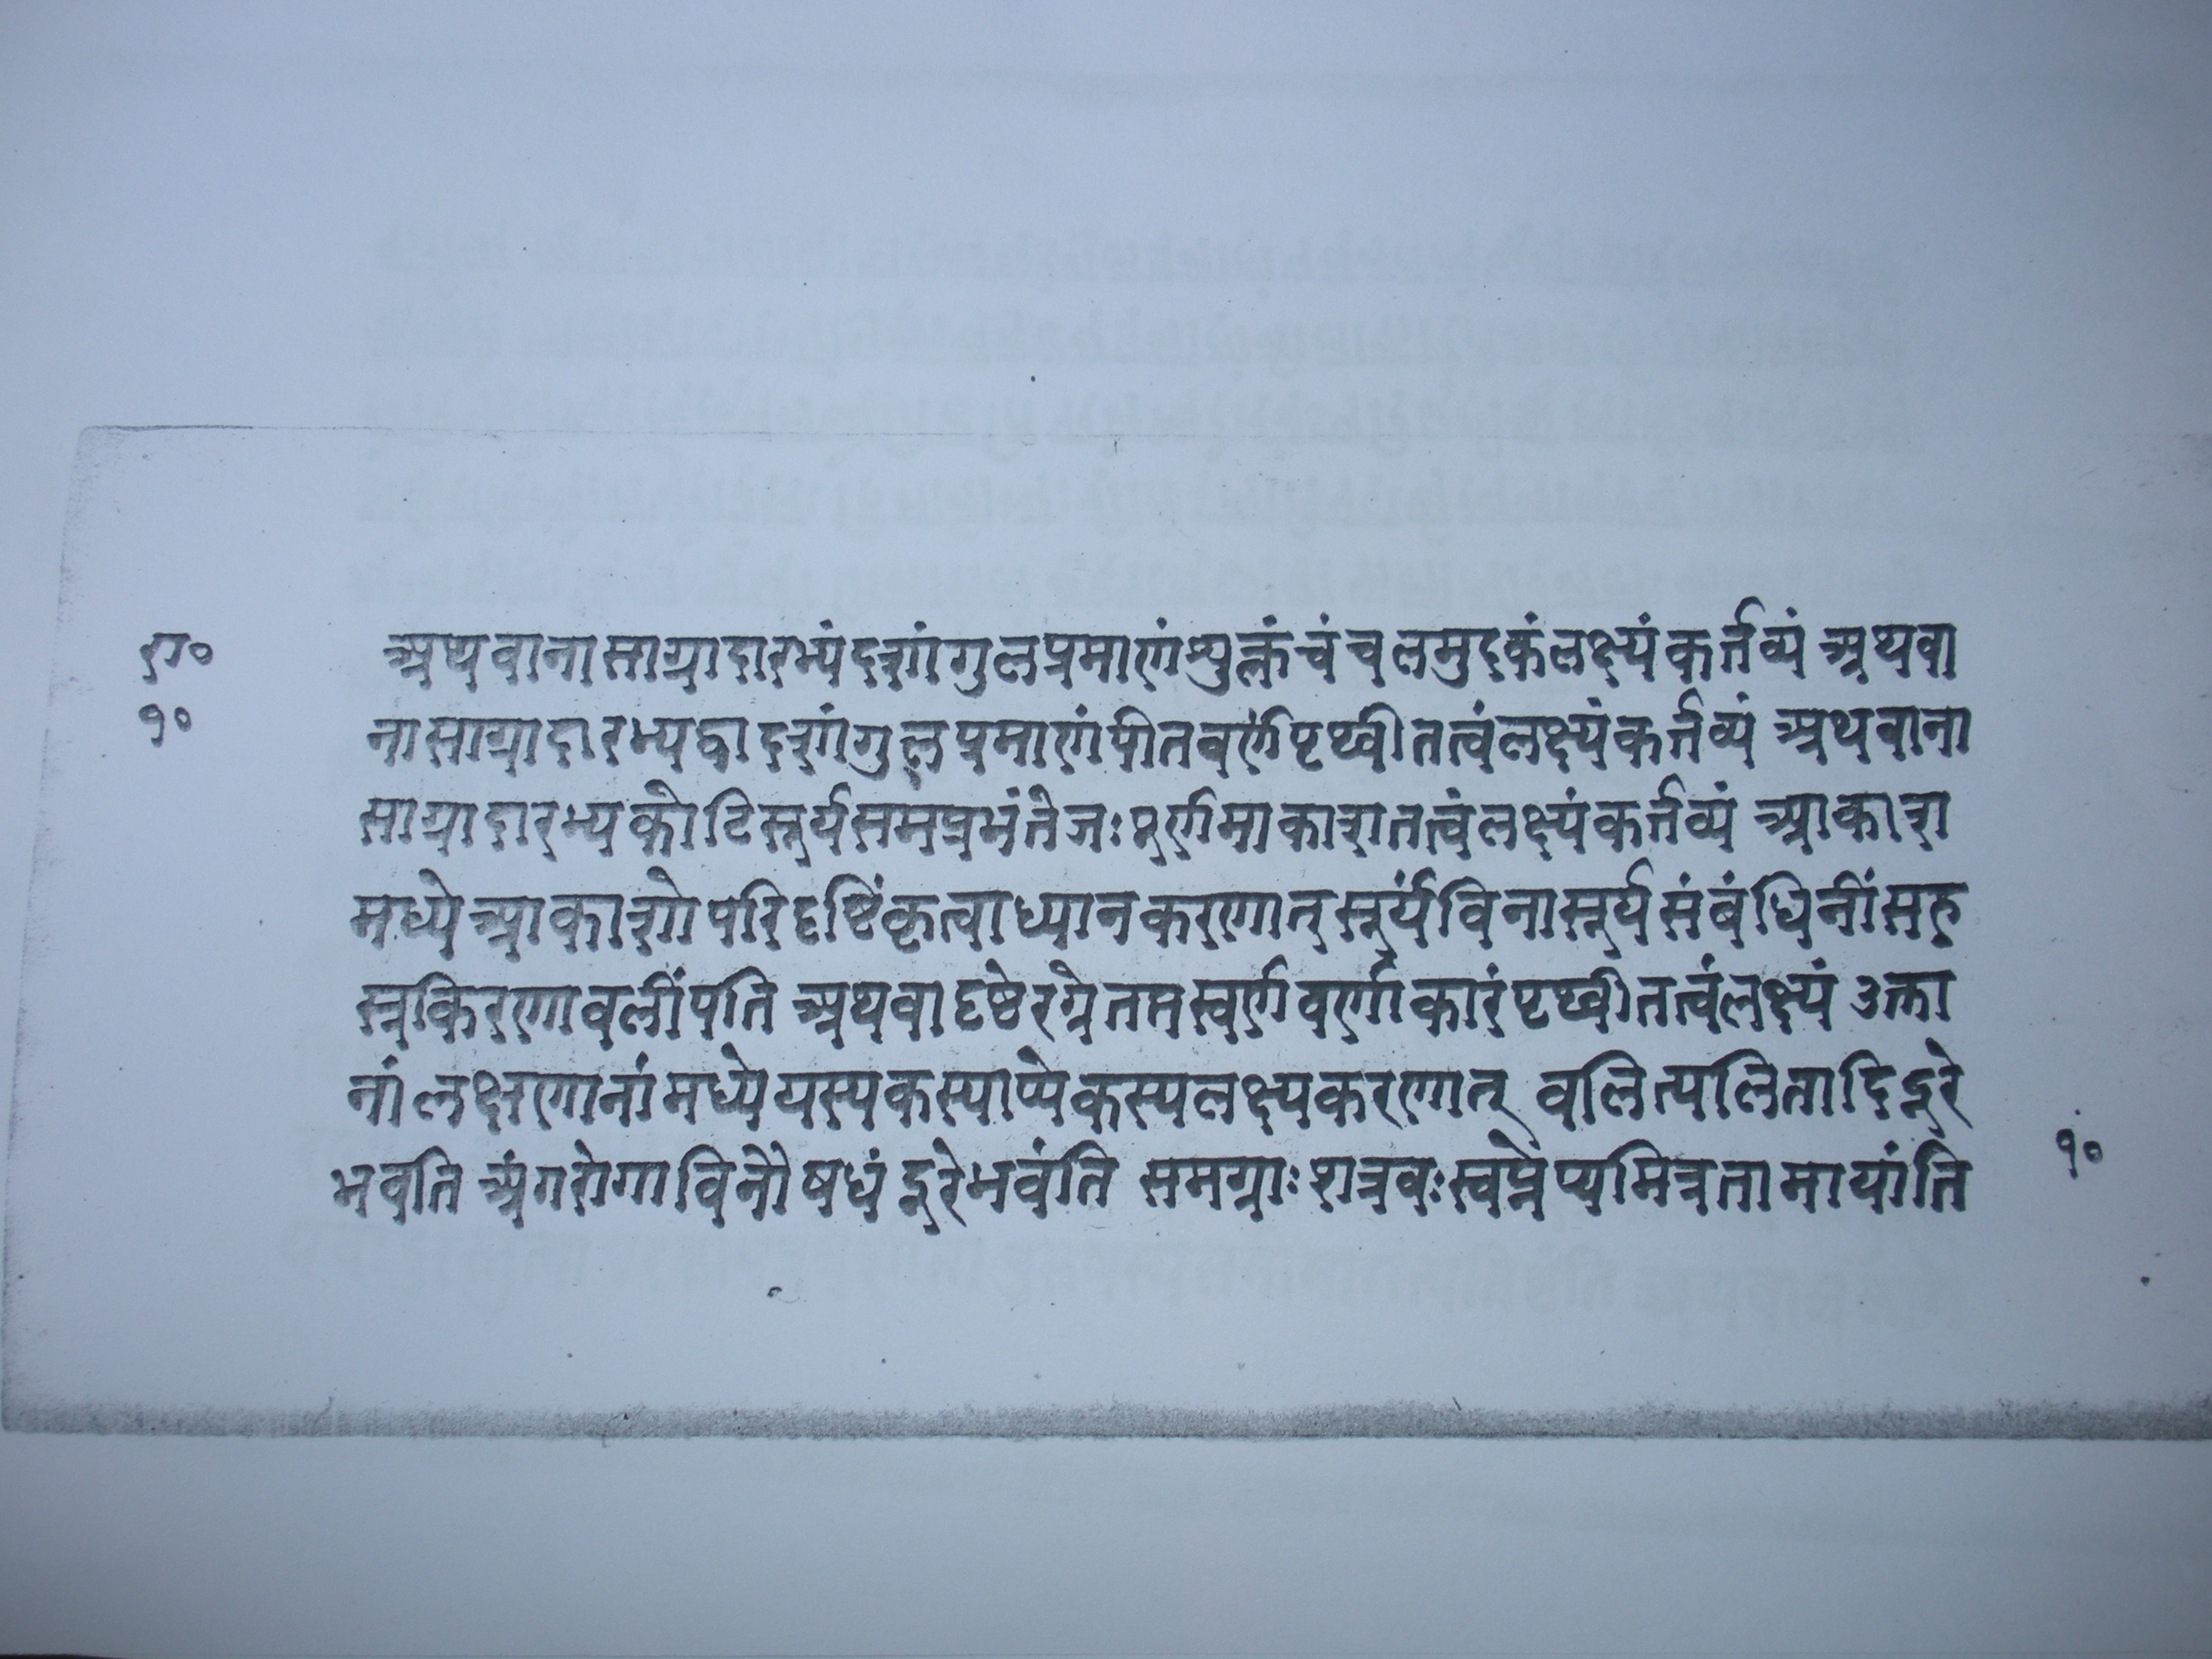 रा०
१०
अथवानासाग्रादारभ्यंदशांगुलप्रमाणंशुक्लंचंचलमुदकंलक्ष्यंकर्त्तव्यं अथवा
नासाग्रादारभ्यद्वादशांगुलप्रमाणंपीतवर्णपृथ्वीतत्वंलक्ष्यंकर्त्तव्यं अथवाना
साग्रादारभ्यकोटिसूर्यसमप्रभंतेजःपूर्णमाकाशतत्वंलक्ष्यंकर्त्तव्यं आकाश
मध्येआकाशोपरिदृष्टिंकृत्वाध्यानकरणात्सूर्यंविनासूर्यसंबंधिनींसह
स्रकिरणावलींपतति अथवादृष्टेरग्रेतप्तस्वर्णवर्णाकारंपृथ्वीतत्वंलक्ष्यं उक्ता
नांलक्षणानांमध्येयस्यकस्याप्येकस्यलक्ष्यकरणात् वलित्यलितादिदूरे
भवति अंगरोगाविनौषधंदूरेभवंति समग्राःशत्रवःस्वप्नेप्यमित्रतामायांति
१०